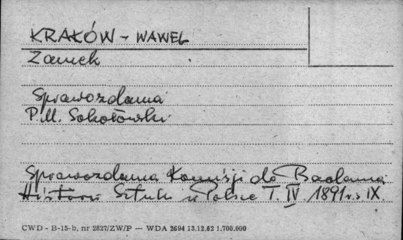 KRAKÓW - WAWEL
Zamek
Sprawozdania
P. M. Sokołowski
Sprawozdania Komisji do Badania
Historii Sztuki w Polsce T. IV. 1891 r. s IX.
CWD - B-15-b, nr 2827/ZW/P — WDA 2694 13.12.63 1.700.000